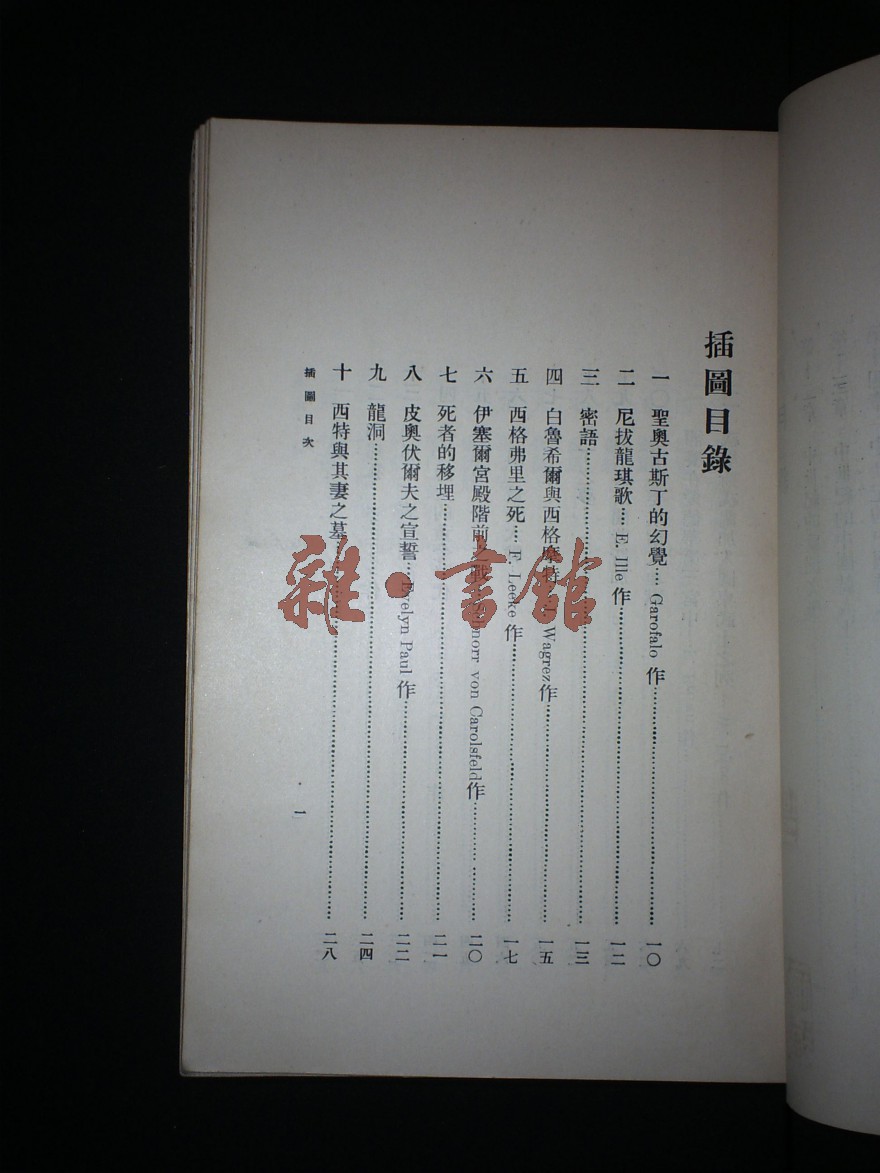 插圖目錄
一 聖奧古斯丁的幻覺…… Garofalo 作……一〇
二 尼拔龍琪歌…… E. Ille 作……一二
三 密語……一三
四 白魯希爾與西格摩特 Wagrez 作……一五
五 西格弗里之死…… F. Leeke 作……一七
六 伊塞爾宮殿階前之戰 Schnorr von Carolsfeld 作……二〇
七 死者的移埋……二一
八 皮奧伏爾夫之宣誓… Evelyn Paul 作……二二
九 龍洞……二四
十 西特與其妻之墓……二八
插圖目次
一
雜·書館